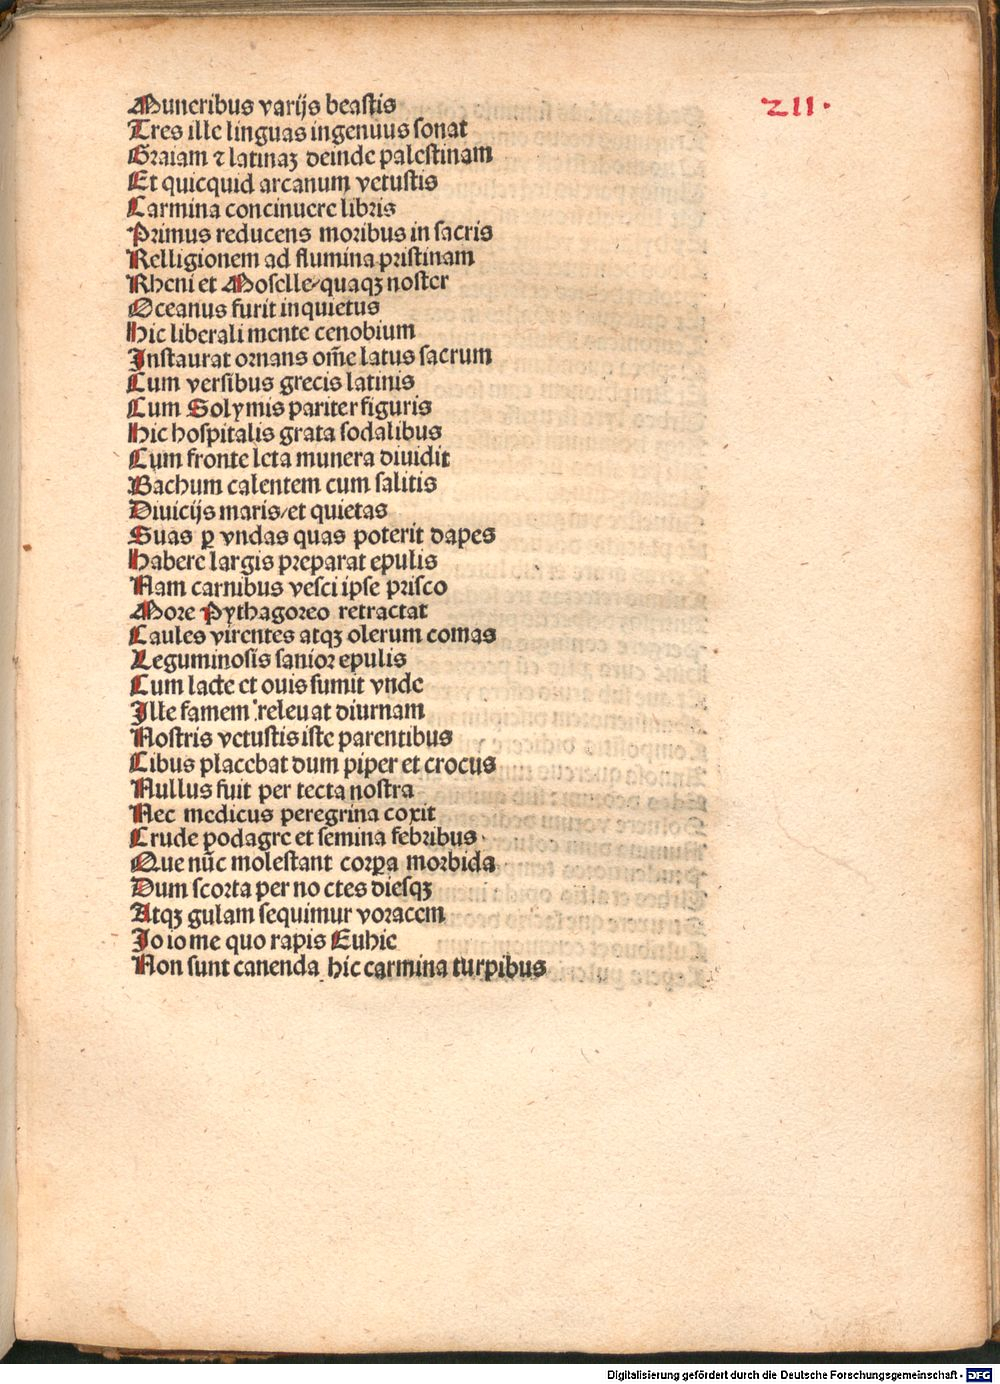 Muneribus varijs beastis
211.
Tres ille linguas ingenuus sonat
Graiam ⁊ latinaꝫ deinde palestinam
Et quicquid arcanum vetustis
Carmina concinuere libris
Primus reducens moribus in sacris
Relligionem ad flumina pristinam
Rheni et Moselle/quaqꝫ noster
Oceanus furit inquietus
Hic liberali mente cenobium
Instaurat ornans om̄e latus sacrum
Cum versibus grecis latinis
Cum Solymis pariter figuris
Hic hospitalis grata sodalibus
Cum fronte leta munera diuidit
Bachum calentem cum salitis
Diuicijs maris/et quietas
Suas ꝑ vndas quas poterit dapes
Habere largis preparat epulis
Nam carnibus vesci ipse prisco
More Pythagoreo retractat
Caules virentes atqꝫ olerum comas
Leguminosis sanior epulis
Cum lacte et ouis sumit vnde
Ille famem releuat diurnam
Nostris vetustis iste parentibus
Cibus placebat dum piper et crocus
Nullus fuit per tecta nostra
Nec medicus peregrina coxit
Crude podagre et semina febribus
Que nūc molestant corꝑa morbida
Dum scorta per no ctes diesqꝫ
Atqꝫ gulam sequimur voracem
Io io me quo rapis Euhie
Non sunt canenda hic carmina turpibus
Digitalisierung gefördert durch die Deutsche Forschungsgemeinschaft - DFG